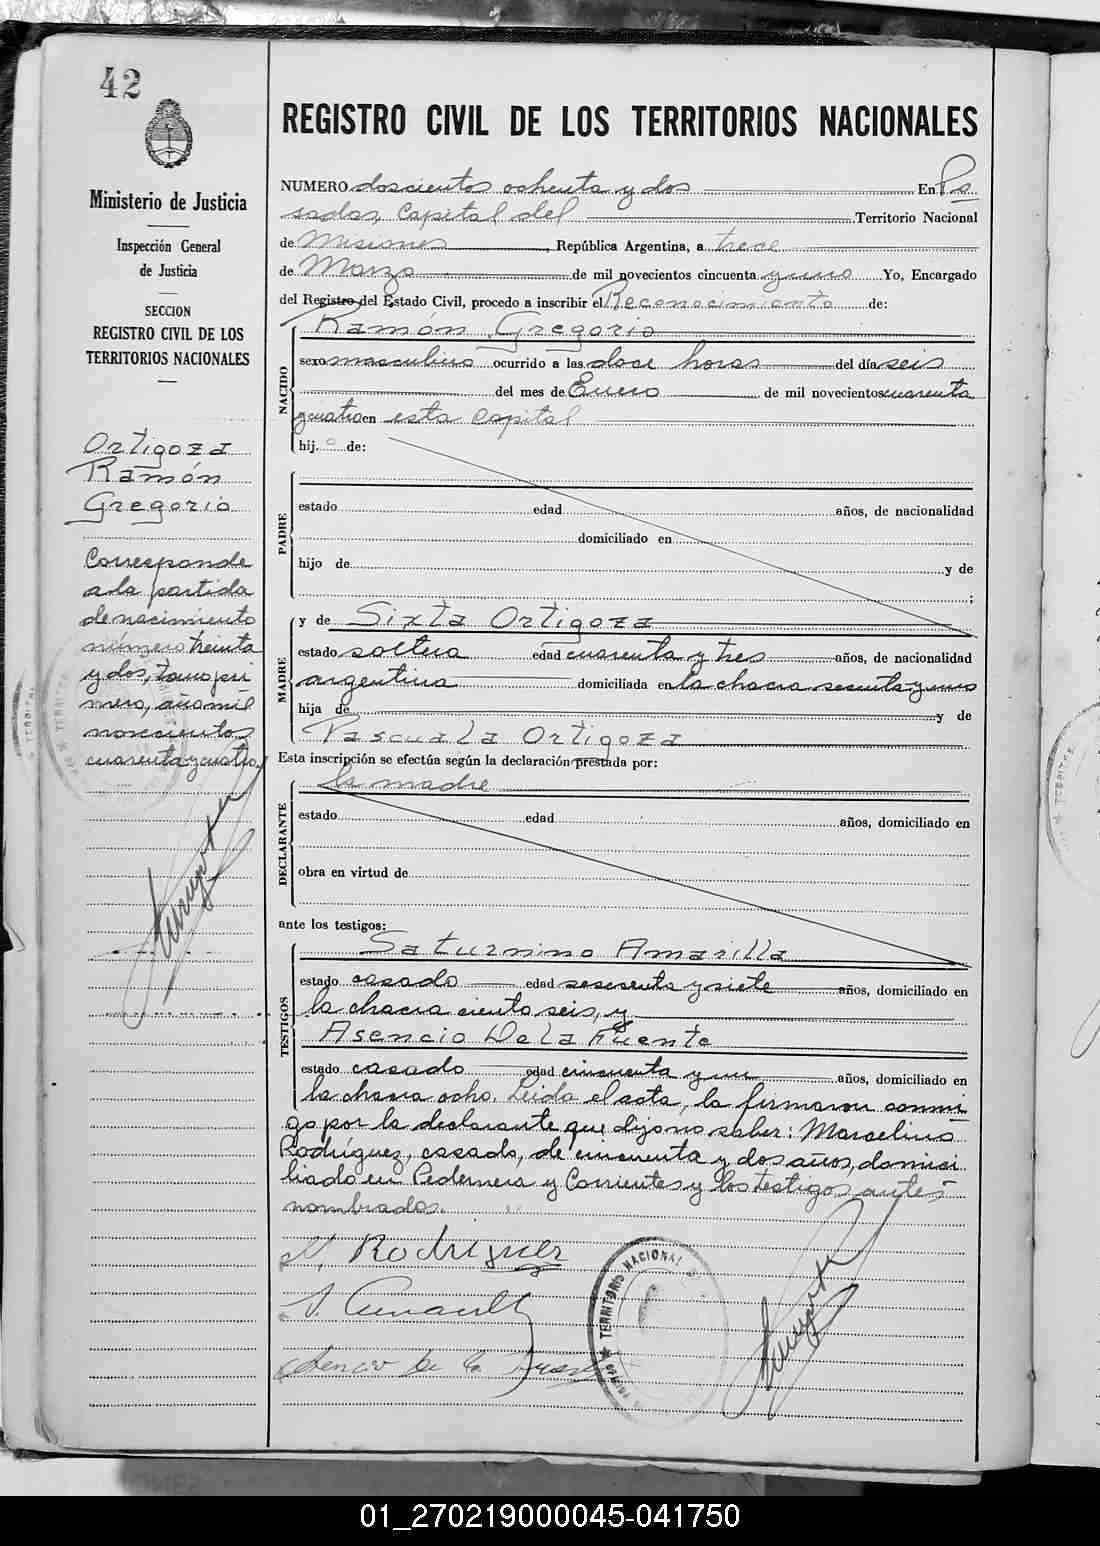 42
Ministerio de Justicia
Inspección General
de Justicia
SECCION
REGISTRO CIVIL DE LOS
TERRITORIOS NACIONALES
Ortigoza
Ramón
Gregorio
Corresponde
a la partida
de nacimiento
número treinta
y dos, tomo pri
mero, año mil
novecientos
cuarenta y cuatro.
REGISTRO CIVIL DE LOS TERRITORIOS NACIONALES
NUMERO doscientos ochenta y dos En Po
sadas, Capital del Territorio Nacional
de Misiones, República Argentina, a trece
de Marzo de mil novecientos cincuenta y uno Yo, Encargado
del Registro del Estado Civil, procedo a inscribir el Reconocimiento de:
Ramón Gregorio
NACIDO
sexo masculino ocurrido a las doce horas del día seis
del mes de Enero de mil novecientos cuarenta
y cuatro en esta Capital
hij o de:
PADRE
estado edad años, de nacionalidad
domiciliado en
hijo de y de
;
MADRE
y de Sixta Ortigoza
estado soltera edad cuarenta y tres años, de nacionalidad
argentina domiciliada en la chacra sesenta y uno
hija de y de
Pascuala Ortigoza
Esta inscripción se efectúa según la declaración prestada por:
la madre
DECLARANTE
estado edad años, domiciliado en
obra en virtud de
ante los testigos:
Saturnino Amarilla
TESTIGOS
estado casado edad sesenta y siete años, domiciliado en
la chacra ciento seis, y
Asencio De la Fuente
estado casado edad cincuenta y un años, domiciliado en
la chacra ocho. Leida el acta, la firmaron conmi-
go por la declarante que dijo no saber: Marcelino
Rodríguez, casado, de cincuenta y dos años, domici-
liado en Pedernera y Corrientes y los testigos antes
nombrados.
M. Rodriguez
S. Amarilla
Asencio de la Fuente
TERRITORIO NACIONAL
01_270219000045-041750